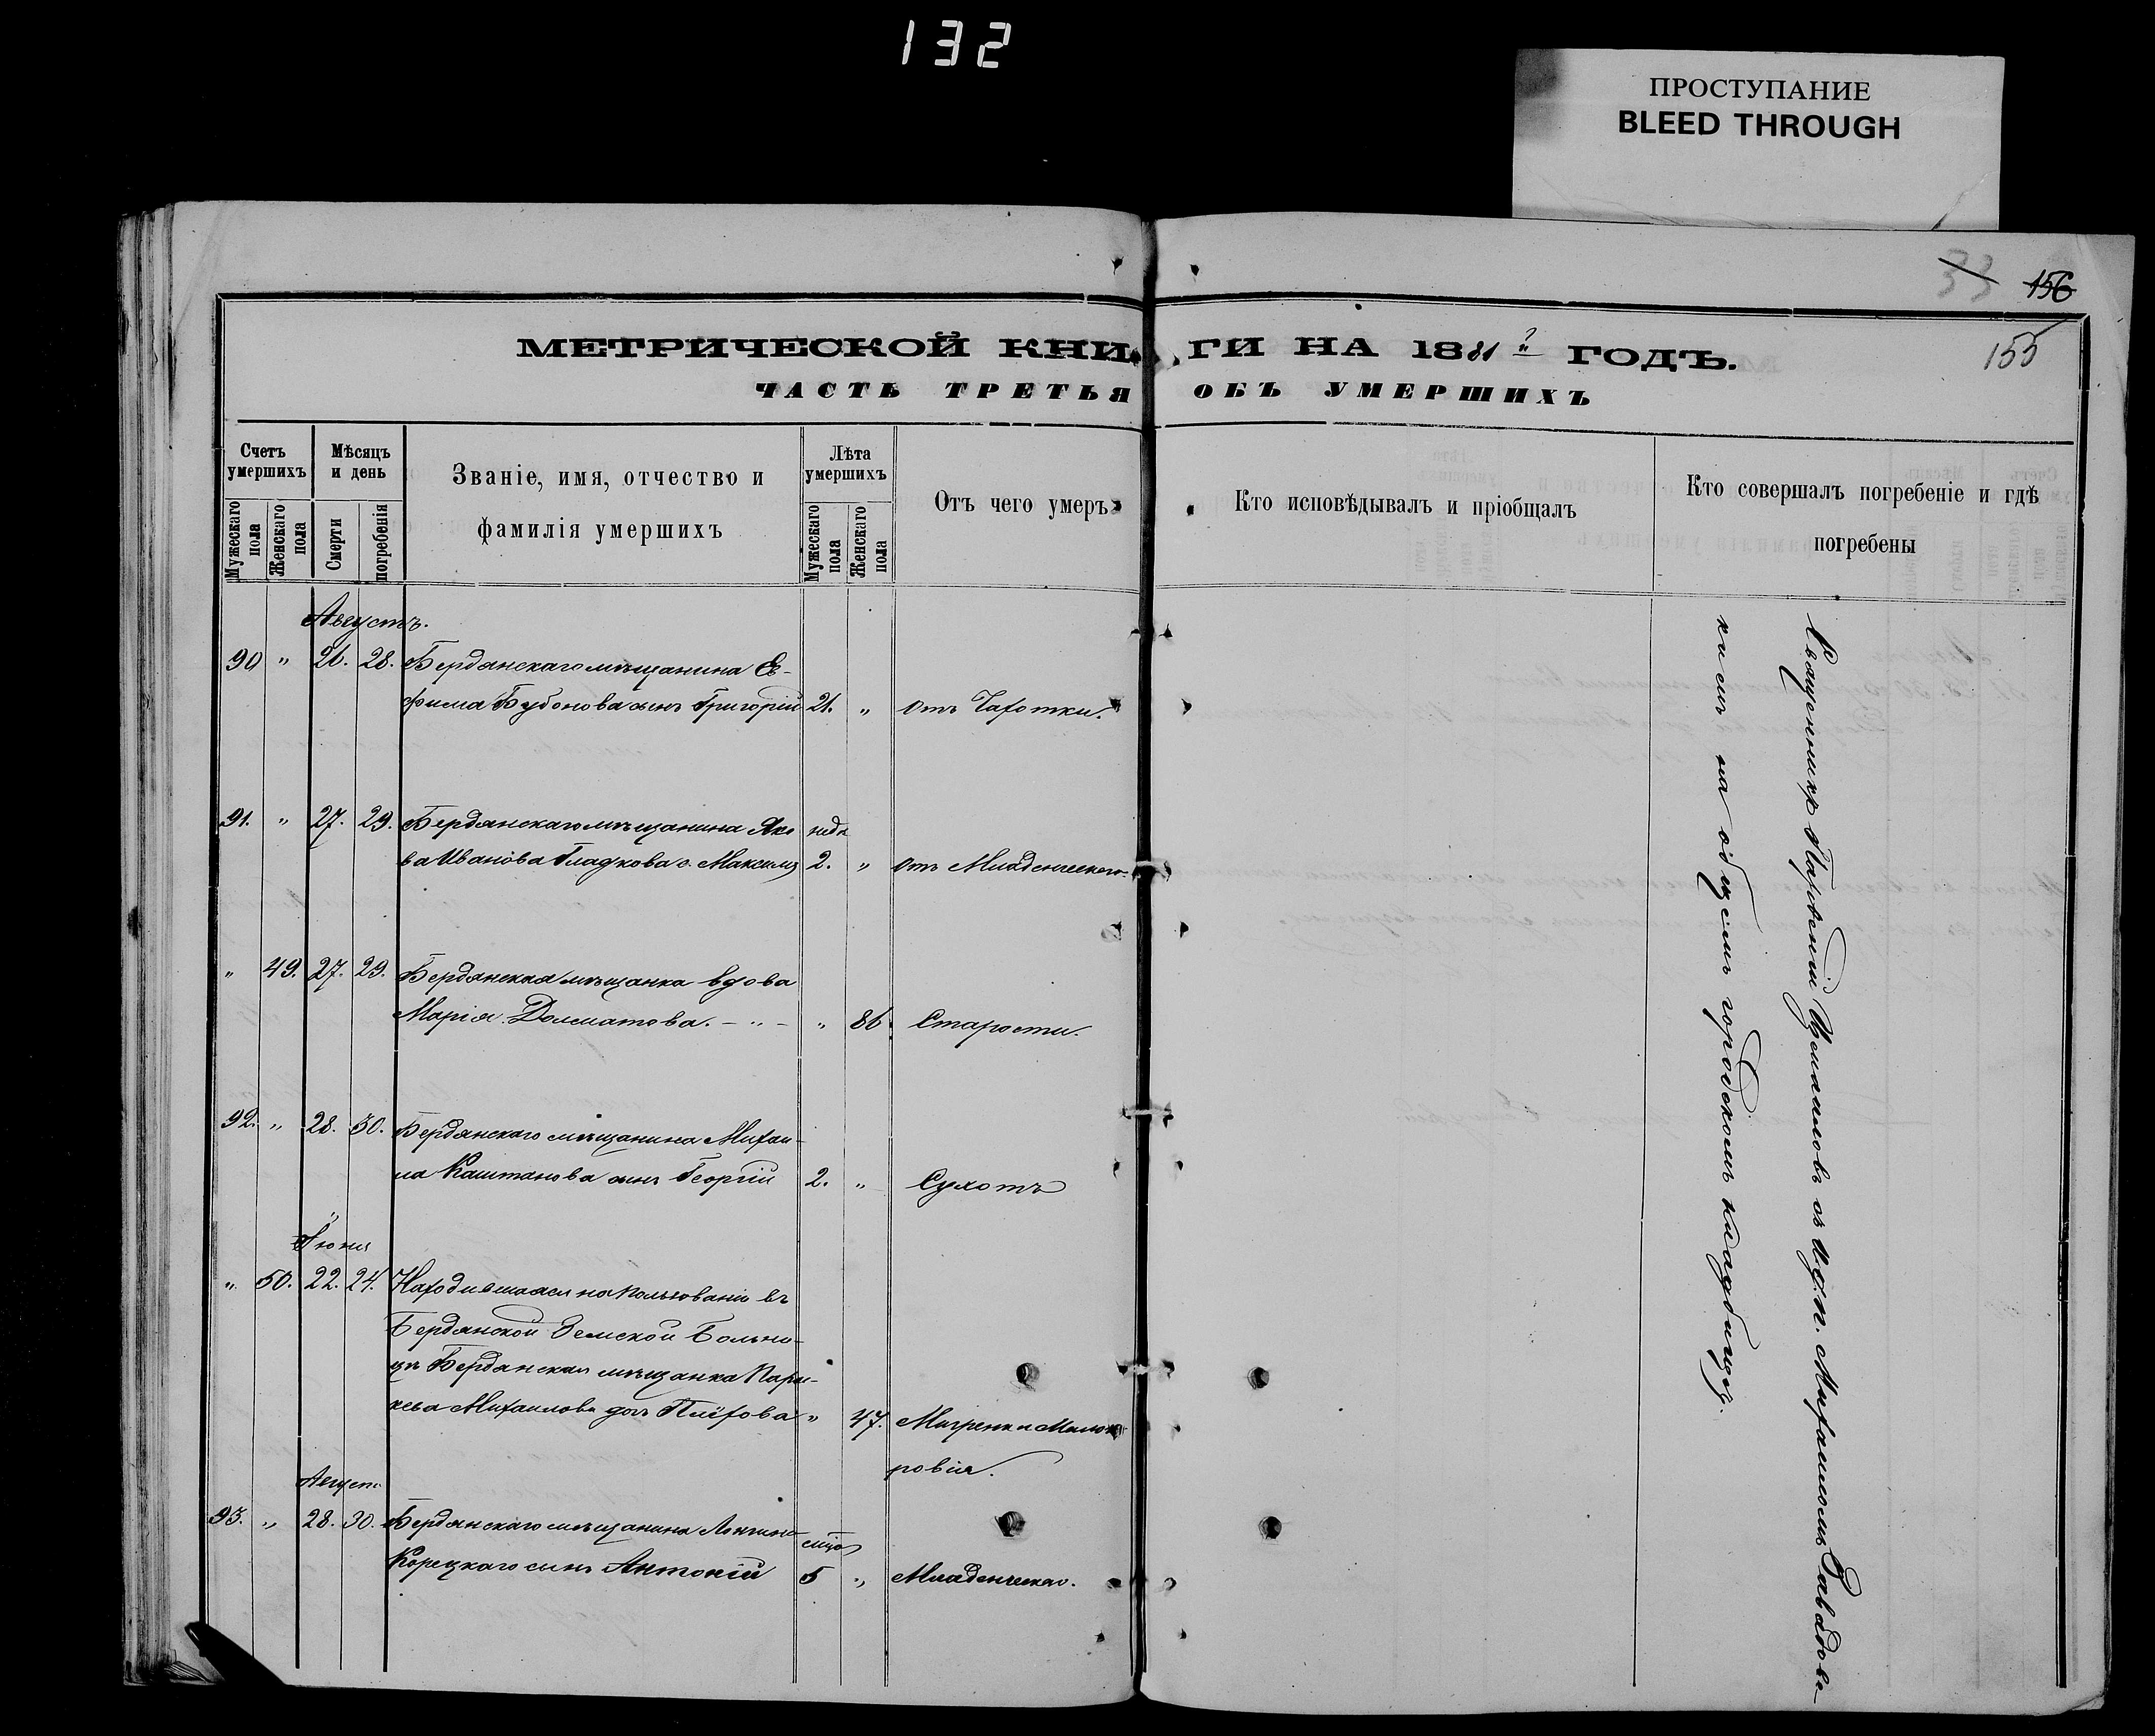 132
ПРОСТУПАНИЕ
BLEED THROUGH
33 156
155
МЕТРИЧЕСКОЙ КНИГИ НА 1881й ГОДЪ.
ЧАСТЬ ТРЕТЬЯ ОБЪ УМЕРШИХЪ
Счетъ умершихъ
Мужескаго пола
Женскаго пола
Мѣсяцъ и день
Смерти
погребенія
Званіе, имя, отчество и
фамилія умершихъ
Лѣта умершихъ
Мужескаго пола
Женскаго пола
Отъ чего умеръ
Кто исповѣдывалъ и пріобщалъ
Кто совершалъ погребеніе и гдѣ
погребены
Августъ.
90 " 26. 28. Бердянскаго мѣщанина Ев-
фима Бубонова сынъ Григорій 21. " отъ Чахотки.
91. " 27. 29. Бердянскаго мѣщанина Яко нед.
ва Иванова Гладкова с. Максимъ 2. " отъ Младенческаго.
" 49. 27. 29. Бердянская мѣщанка вдова
Марія Долматова. - " - " 86. Старости.
92. " 28. 30. Бердянскаго мѣщанина Михаи-
ла Каштанова сынъ Георгій 2. " Сухотъ
Іюня
" 50. 22. 24. Находившаяся на пользованіи въ
Бердянской Земской Больни-
цѣ Бердянская мѣщанка Парас-
кева Михаилова дочь Плѣхова " 47. Мигрени и Малок
ровія.
Августъ
93. " 28. 30. Бердянскаго мѣщанина Логина
Корецкаго сынъ Антоній 5 " Младенческаго.
Священникъ Парѳеній Измаиловъ съ и. д. п. Михаиломъ Завадов-
кимъ на общемъ городскомъ кладбищѣ.